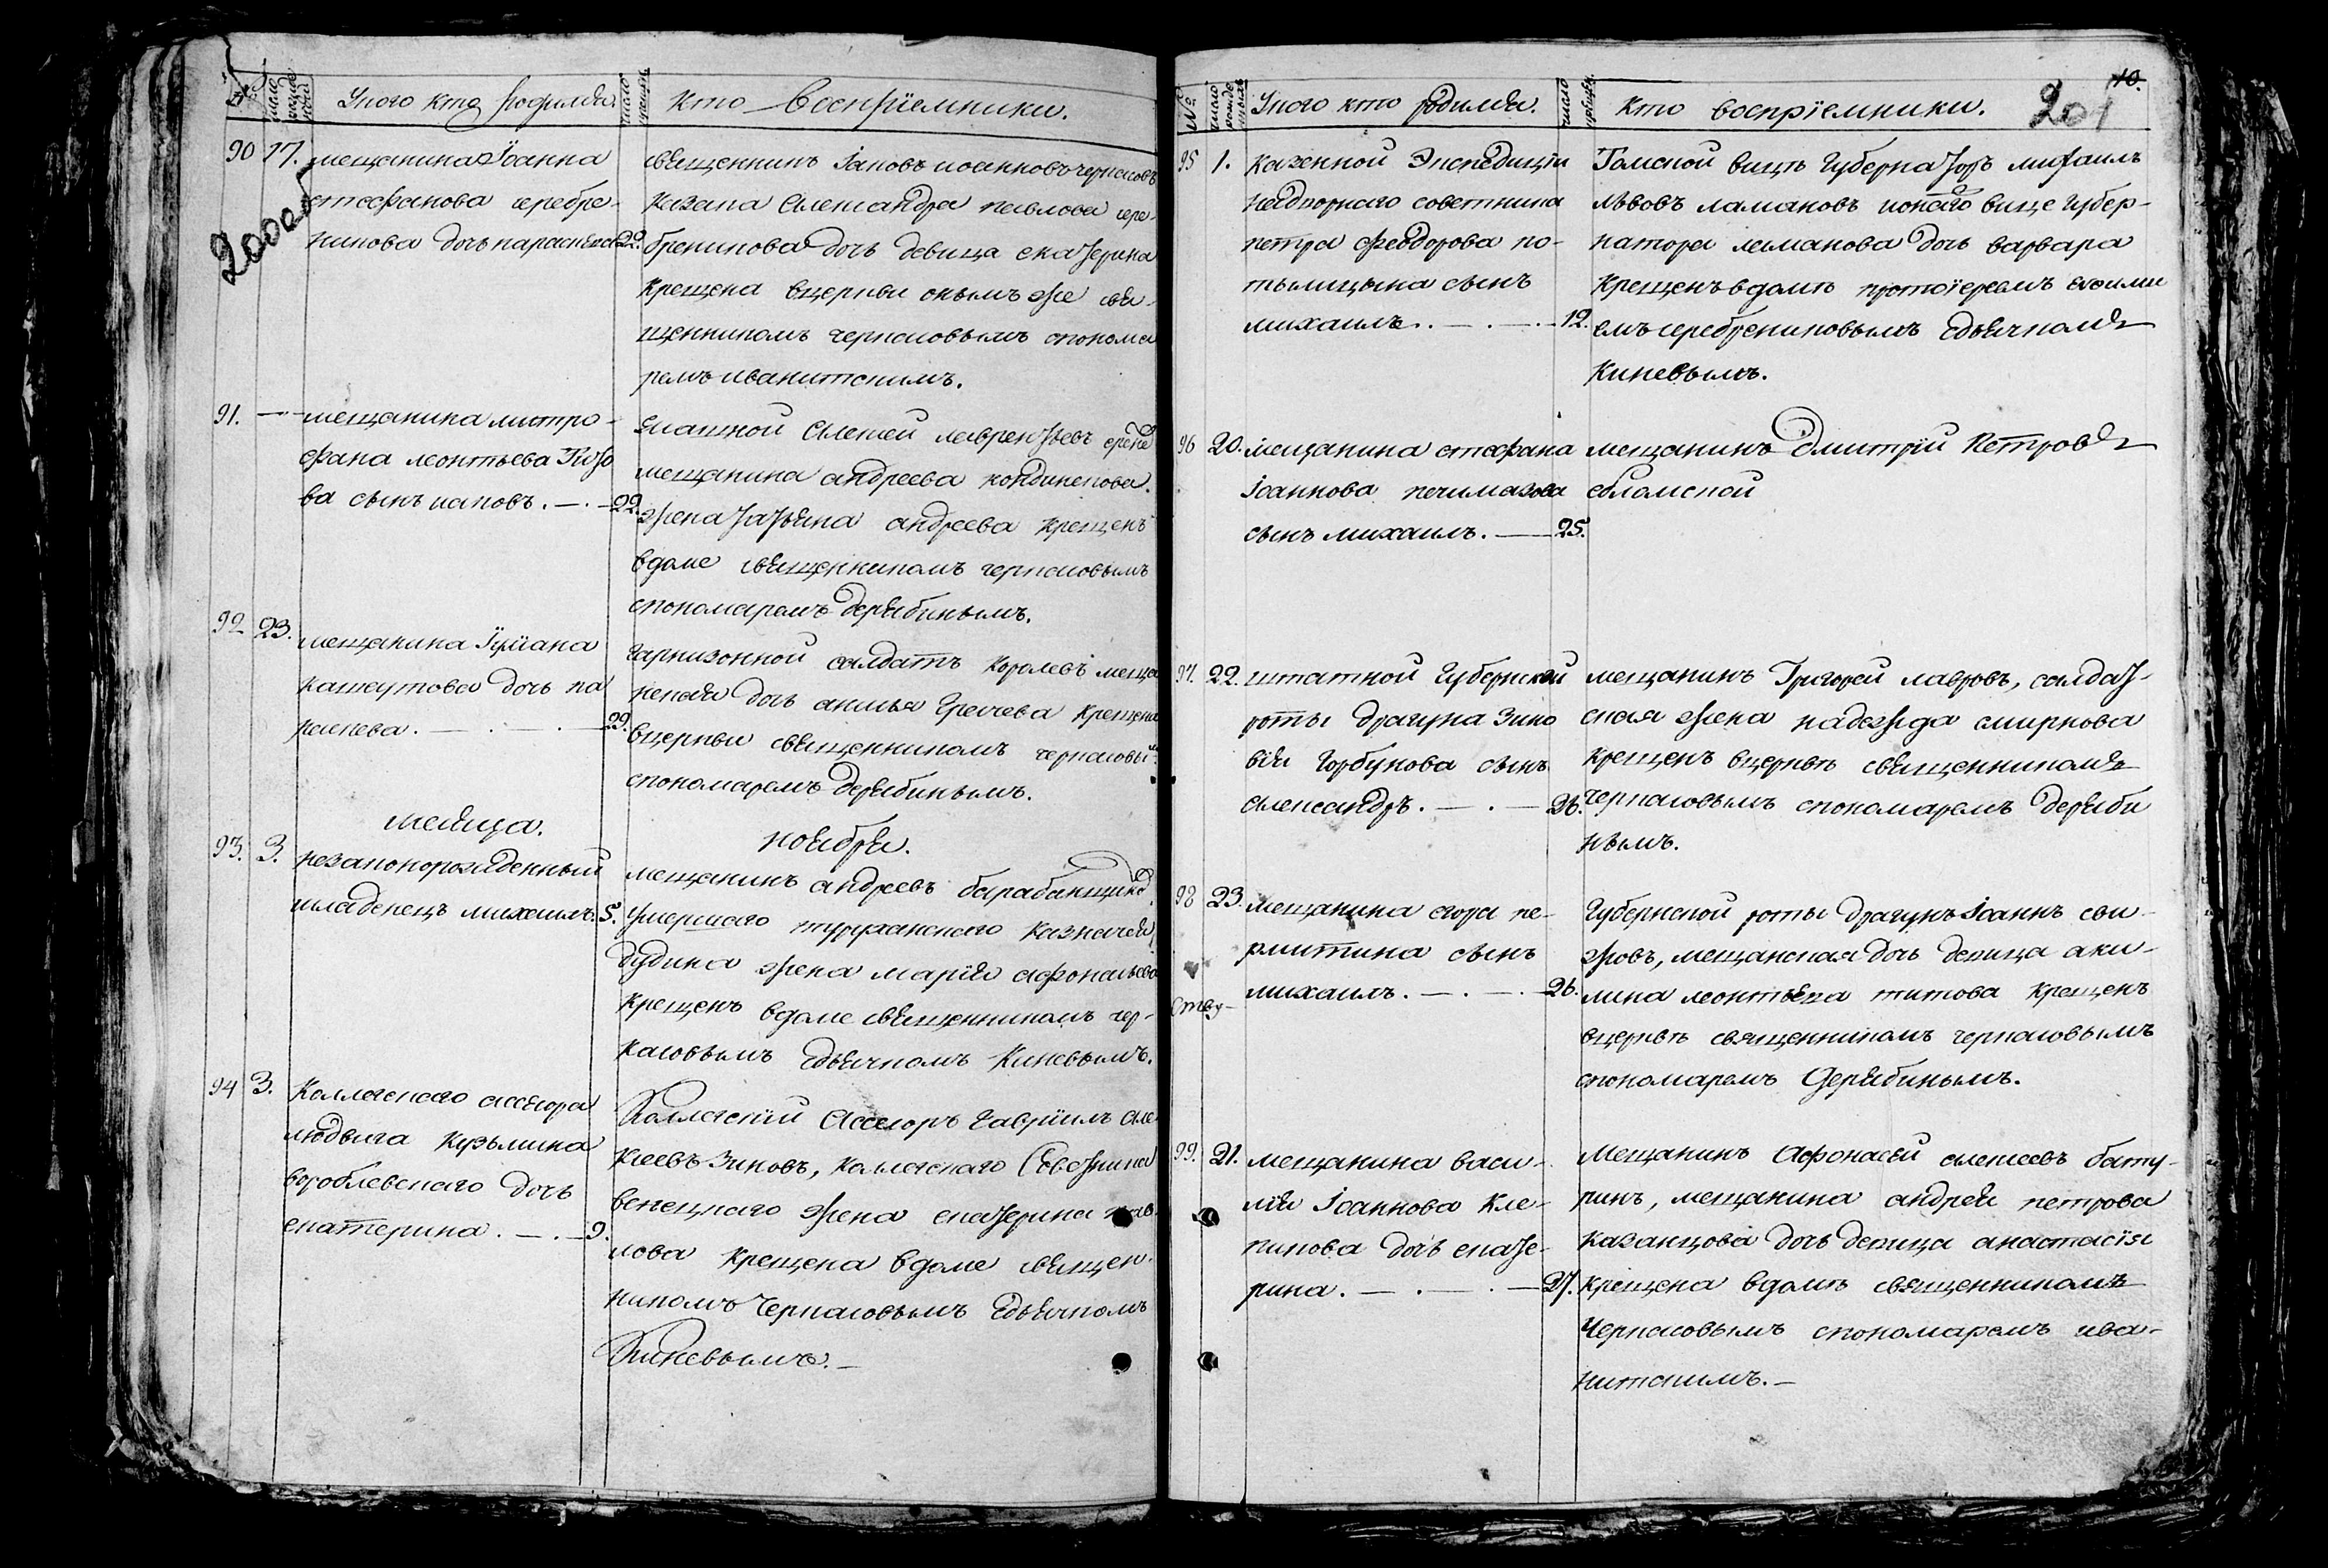 № число рожде нiй Укого кто родился. число крещен. Кто воспрiемники.
90 17. мещанина Iоанна
стефанова серебре-
никова дочь параскева 22.
200об
священникъ Iаковъ иоанновъ черкасовъ
казака Александра павлова сере-
бреникова дочь девица екатерина
крещена вцеркви онымъ же свя-
щенникомъ черкасовымъ спонома
ремъ иванитскимъ.
91. — мещанина митро-
фана леонтьева
ва сынъ иаковъ. — . — 22.
Алексей лаврентьевъ
мещанина андреева
жена татьяна андреева крещенъ
вдоме священникомъ черкасовымъ
спономаремъ дерябинымъ.
92 23. мещанина
дочь па
раскева. — . — . — 29.
гарнизонной салдатъ королевъ меща
нская дочь крещена
вцеркви священникомъ черкасовым
спономаремъ дерябинымъ.
месяца. ноября.
93. 3. незаконорожденный
младенецъ михаилъ. 5.
мещанинъ андреевъ барабанщиковъ
умершаго туруханскаго казначея
дудина жена марiя афонасьева
крещенъ вдоме священникомъ чер-
касовымъ сдьячкомъ Киневымъ.
94 3. Коллегскаго ассесора
людвига кузьмина
вороблевскаго дочь
екатерина. — . — 9.
Коллегскiй Ассесоръ гаврiилъ Але
ксеевъ Зиновъ, коллегскаго Советника
венецкаго жена екатерина пав
лова крещена вдоме священ-
никомъ Черкасовымъ сдьячкомъ
Киневымъ. —
10.
201
№ число рожде нныхъ Укого кто родился. число крещен. Кто воспрiемники.
95 1. казенной Экспедицiи
надворнаго советника
петра феодорова по-
тылицына сынъ
михаилъ. . — . — . — 12.
Томской вицъ Губернаторъ михаилъ
львовъ ламановъ ионаго вице губер-
натора ламанова дочь варвара
крещенъ вдомъ протоiереемъ
емъ серебрениковымъ сдьячкомъ
Киневымъ.
96 20. мещанина стефана
Iоаннова печимазова
сынъ михаилъ. — 25.
мещанинъ Дмитрiй Петровъ
97. 22. штатной Губернской
роты драгуна Зино
вiя горбунова сынъ
александръ. — . — 26.
мещанинъ Григорей лавровъ, салдат-
ская жена надежда смирнова
крещенъ вцеркве священникомъ
черкасовымъ спономаремъ деряби
нымъ.
98 23. мещанина егора пе-
рмитина сынъ
михаилъ. — . — . — 26.
Губернской роты драгунъ Iоаннъ сви-
жовъ, мещанская дочь девица аки-
лина леонтьева титова крещенъ
вцеркве священникомъ черкасовымъ
спономаремъ Дерябинымъ.
99. 21. мещанина васи-
лiя Iоаннова Кле-
пикова дочь екате-
рина. — . — . — 27.
Мещанинъ Афонасей алексеевъ бату-
ринъ, мещанина андрея петрова
казанцова дочь девица анастасiя
крещена вдоме священникомъ
Черкасовымъ спономаремъ ива-
нитскимъ. —